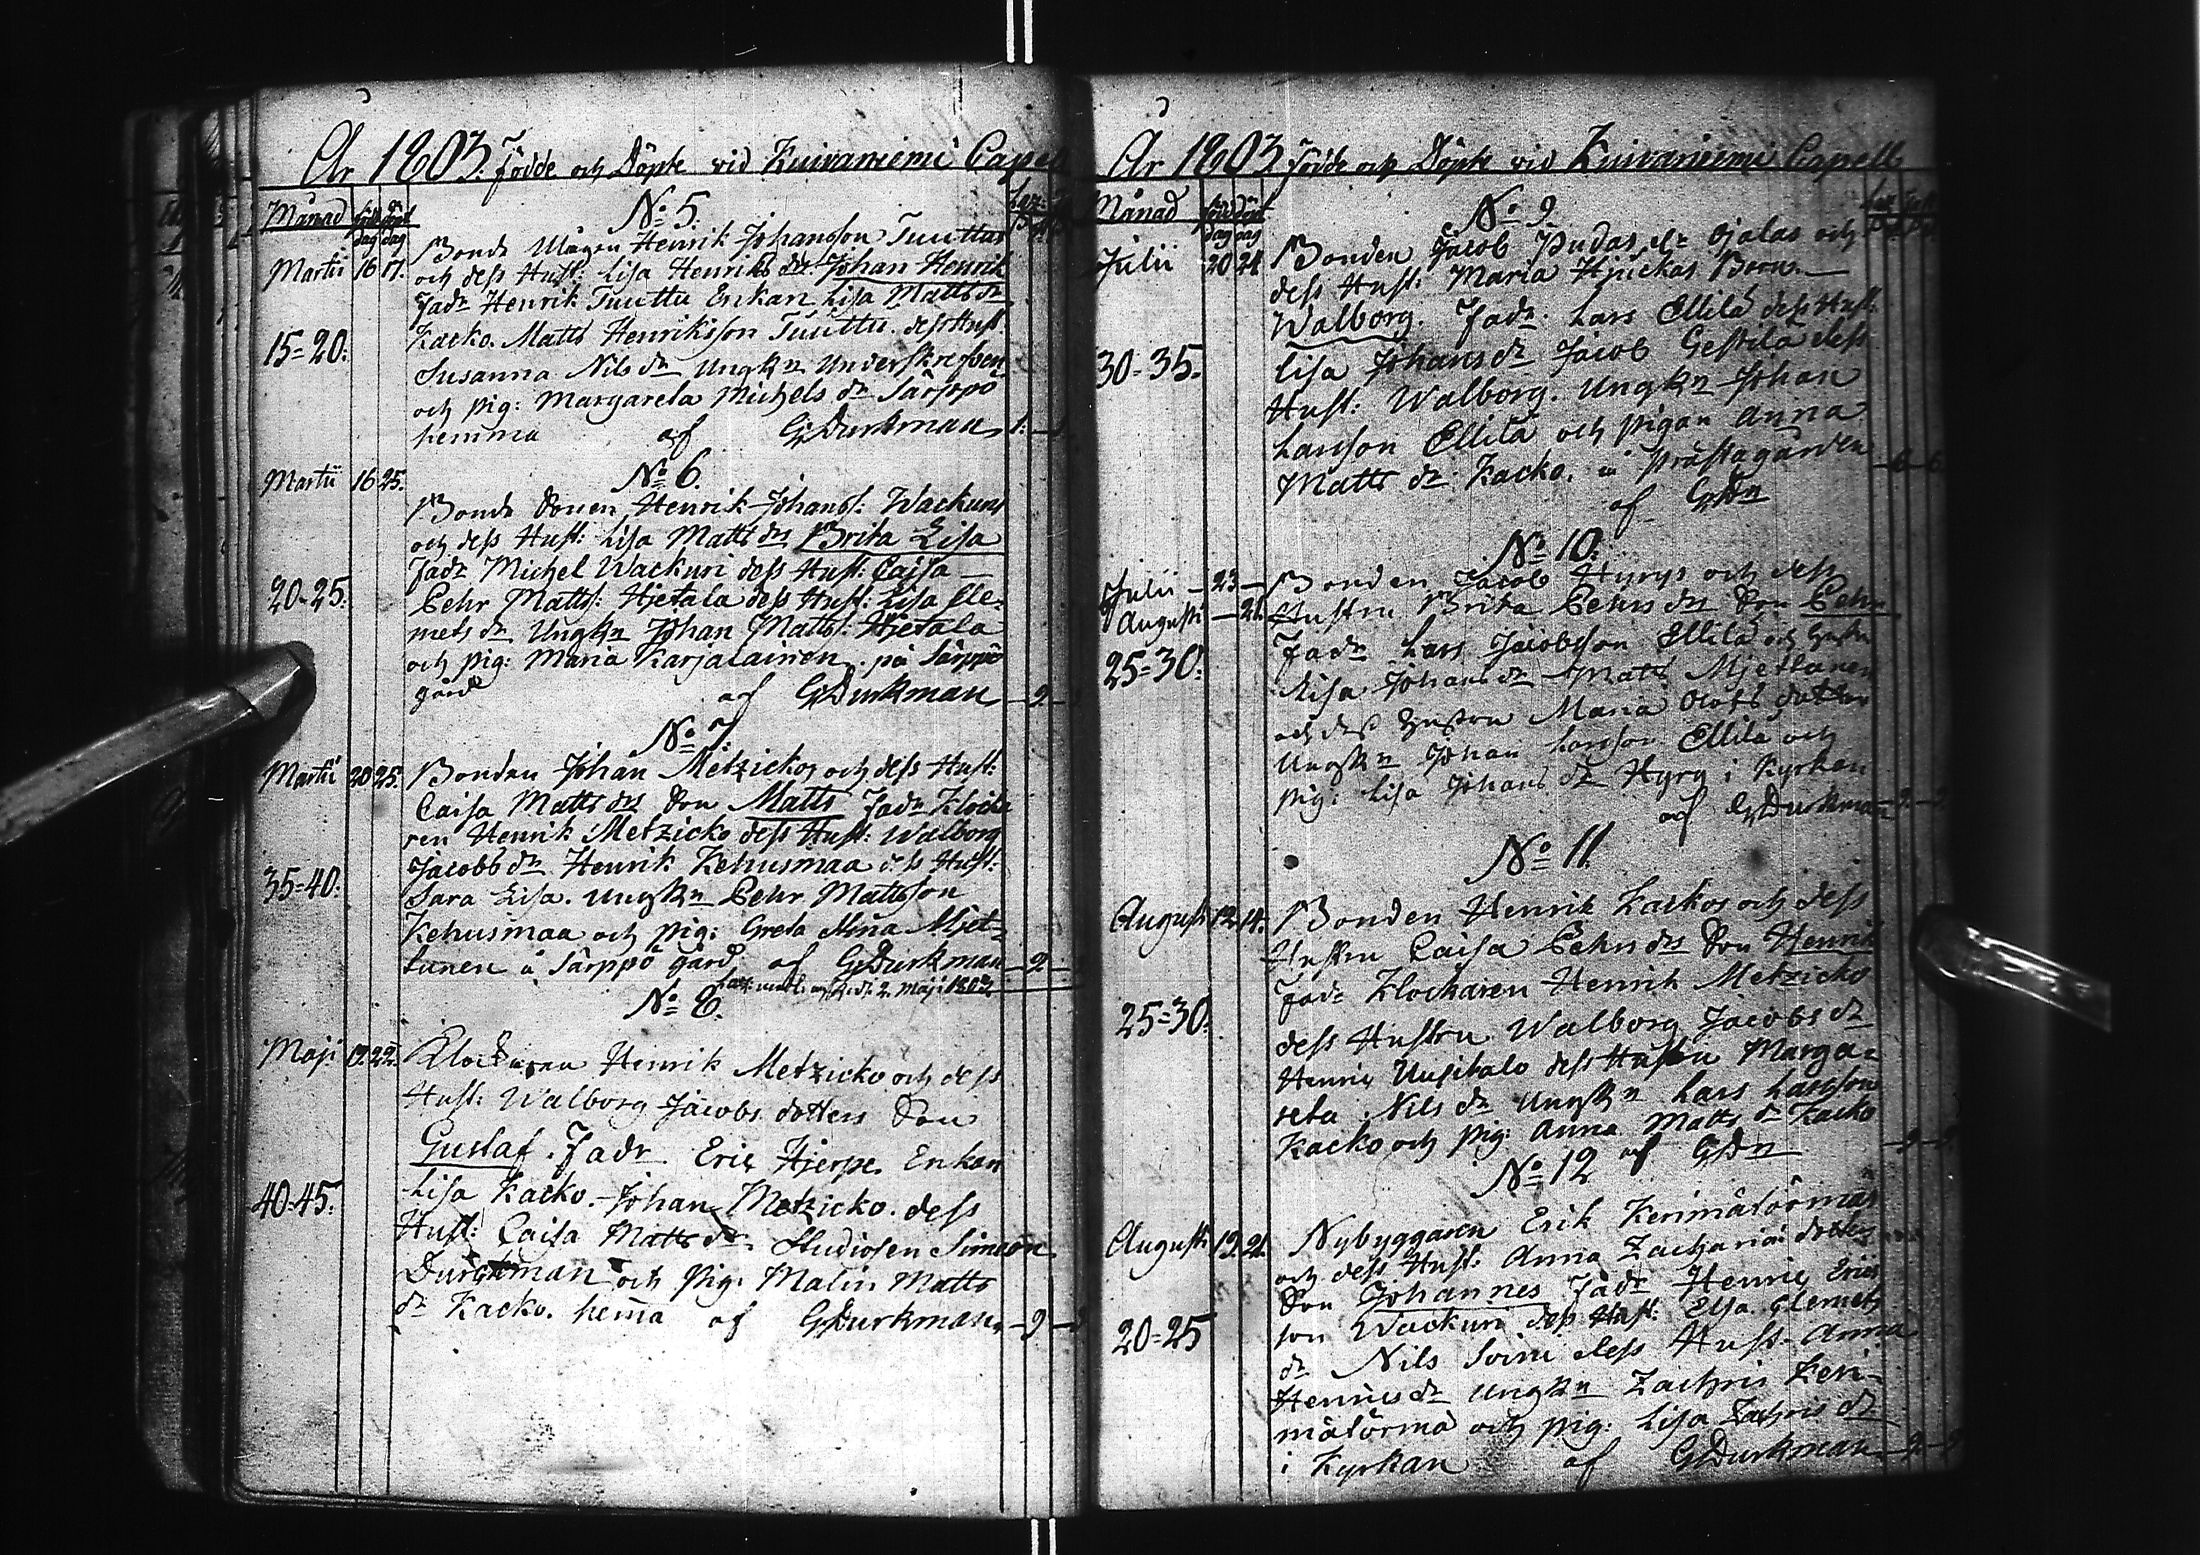 År 1803. Födde och Döpte vid Kuivaniemi Capell
Månad född dag döpt dag
No 5.
Martii 16 17. Bonde Mågen Henrik Johansson Tuuttus
och dess Hust: Lisa Henriks dr Johan Henrik
Fadr Henrik Tuuttu Enkan Lisa Matts dr
Kacko. Matts Henriksson Tuuttu. dess Hust
15=20. Susanna Nils dr Ungkn Underskrefven
och pig: Margareta Michels dr Särppö
hemma af GDurkman
No 6.
Martii 16 25. Bonde Sonen Henrik Johanss: Wackuris
och dess Hust: Lisa Matts drs Brita Lisa
Fadr Michel Wackuri dess Hust: Caisa
20-25. Pehr Matts: Hjetala dess Hust: Lisa Cle-
mets dr Ungkn Johan Matts: Hjetala
och pig: Maria Karjalainen. på Särppö
gård af GDurkman 9
No 7.
Martii 20 25. Bonden Johan Metzickos och dess Hust:
Caisa Matts drs Son Matts Fadr Klocka
ren Henrik Metzicko dess Hust: Walborg
Jacobs dr Henrik Kehusmaa dess Hust:
35=40. Sara Lisa. Ungkn Pehr Mattsson
Kehusmaa och pig: Greta Mina Mjet-
tunen å Särppö gård af GDurkman 9
2 Maji 1803
No 8.
Maji 19. 22. Klockaren Henrik Metzicko och dess
Hust: Walborg Jacobs dotters Son
Gustaf. Fadr Eric Hjerpe. Enkan
40-45. Lisa Kacko. Johan Metzicko. dess
Hust: Caisa Matts dr. Studiosen Simeon
Durckman och Pig: Malin Matts
dr Kacko. hema af GDurkman 9
År 1803 Födde och Döpte vid Kuivaniemi Capell
Månad född dag döpt dag
No 9.
Julii 20 24 Bonden Jacob Pudas elr Ojalas och
dess Hust: Maria Barn
Walborg. Fadr. Lars Ellilä dess Hust:
30-35. Lisa Johans dr Jacob Gestilä dess
Hust: Walborg. Ungkn Johan
Larsson Ellilä och pigan Anna
Matts dr Kacko. å Prästagården 6
af GDn
No 10.
Julii 23 Bonden Jacob Hyrys och dess
Augusti 21. Hustru Brita Pehrs drs Son Pehr
Fadr Lars Jacobsson Ellilä och hustru
25=30. Lisa Johans dr Matts Mjettunen
och dess Hustru Maria Olofs dotter
Ungkn Johan Larsson Ellilä och
Pig: Lisa Johans dr Hyry i Kyrkan
af GDurkman 9
No 11.
Augusti 12 14. Bonden Henrik Kackos och dess
Hustru Caisa Pehrs drs Son Henrik
Fadr Klockaren Henrik Metzicko
25=30. dess Hustru Walborg Jacobs dr
Henric Uusitalo dess Hustru Marga-
reta Nils dr Ungkn Lars Larsson
Kacko och Pig: Anna Matts dr Kacko
af GDn 9
No 12
Augusti 19 21. Nybyggaren Erik Kerimätörmäs
och dess Hust: Anna Zacharioe dotters
Son Johannes Fadr Henric Erics
son Wackuri dess Hust: Elsa Clemets
20=25 dr Nils Soini dess Hust- Anna
Henrics dr Ungkn Zachris Keri-
mätörmä och pig: Lisa Zachris dr
i Kyrkan af GDurkman 9